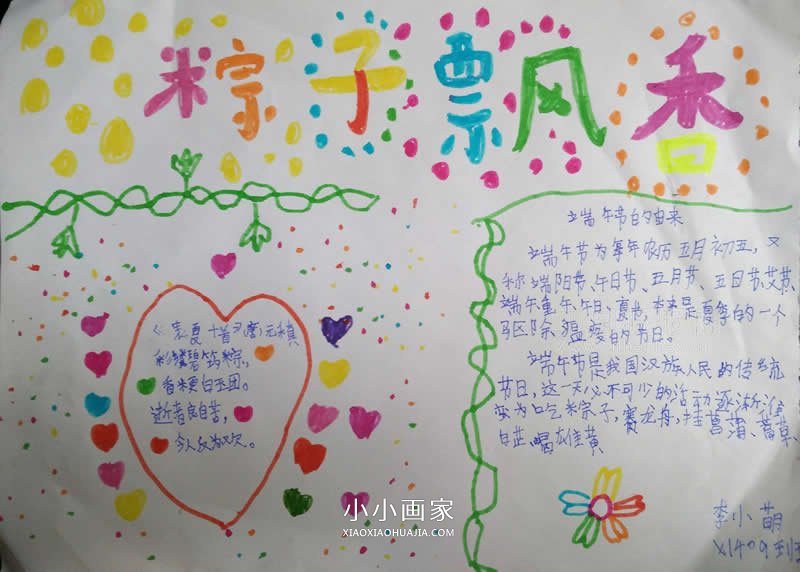 粽子飘香
《表夏十首》唐 元稹
彩缕碧筠粽,
香粳白玉团。
逝者良自苦,
今人反为欢。
端午节的由来
端午节为每年农历五月初五,又
称端阳节、午日节、五月节、五日节、艾节、
端午、重午、午日、夏节,本来是夏季的一个
驱除瘟疫的节日。
端午节是我国汉族人民的传统
节日,这一天必不可少的活动逐渐演
变为吃粽子,赛龙舟,挂菖蒲、蒿草、
白芷,喝雄黄
李小萌
小小画家
XIAOXIAOHUAJIA.COM